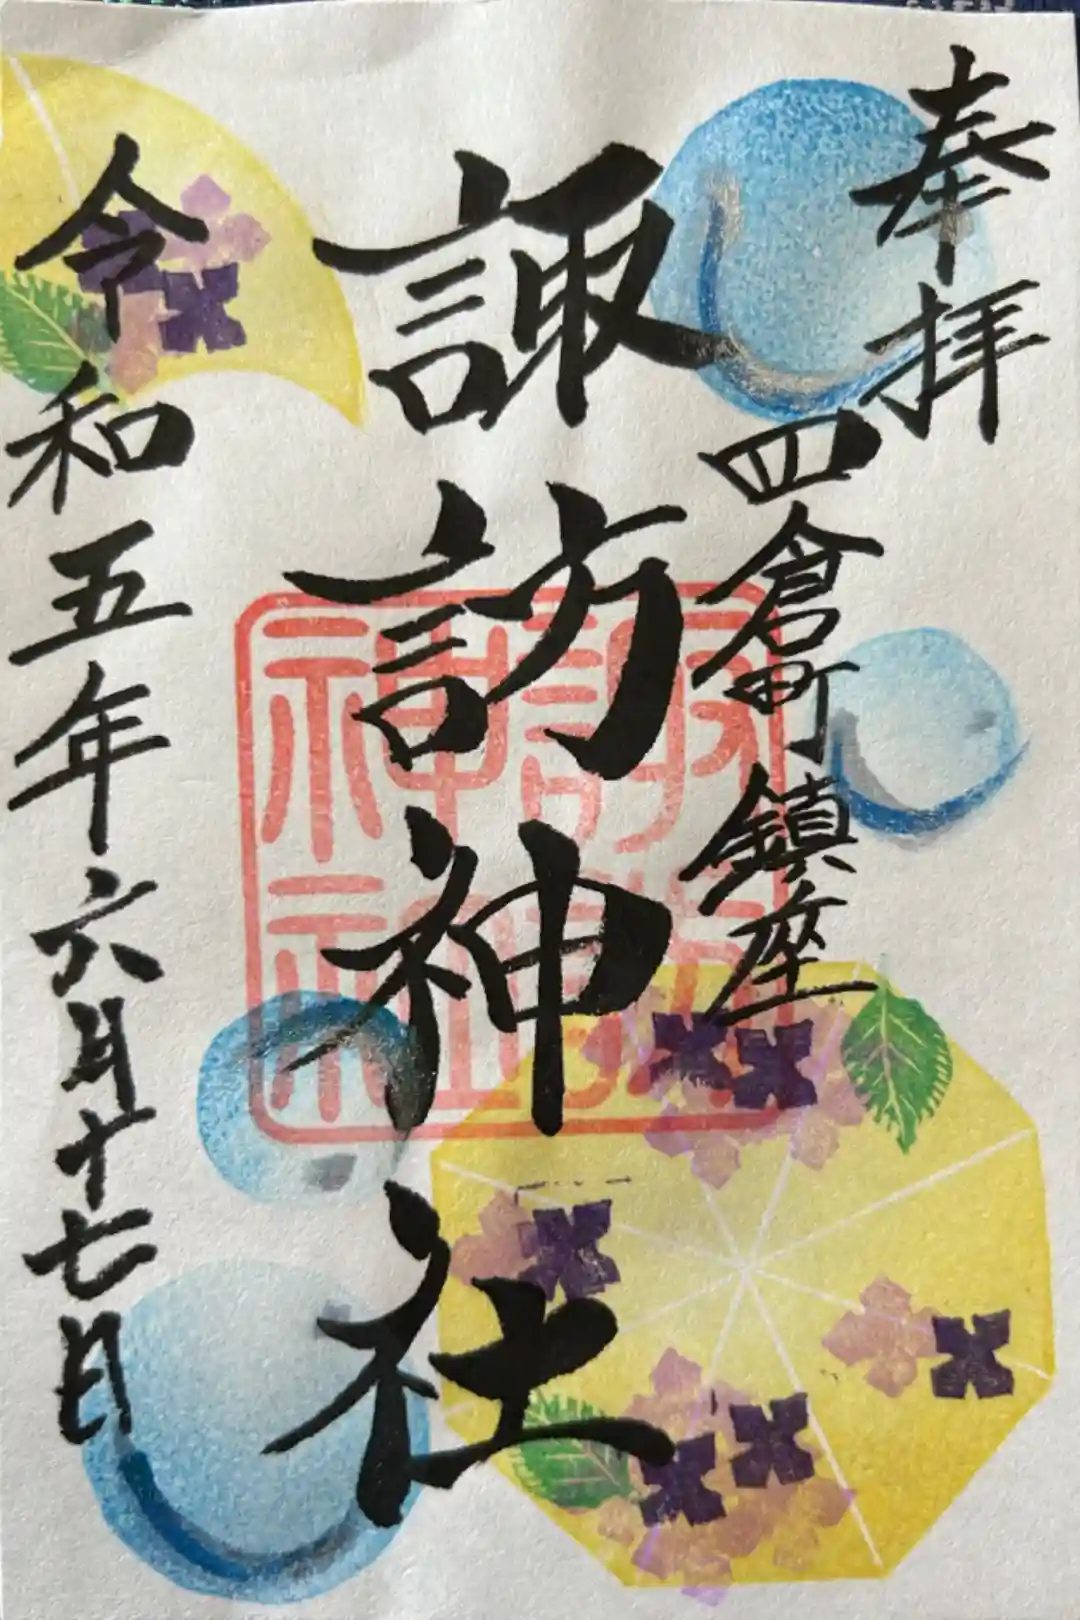 奉拝
四倉町鎮座
諏訪神社
令和五年六月十七日
諏訪
神社